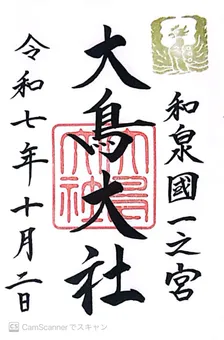 和泉國一之宮
大鳥大社
令和七年十月二日
大鳥大社
CS CamScanner でスキャン